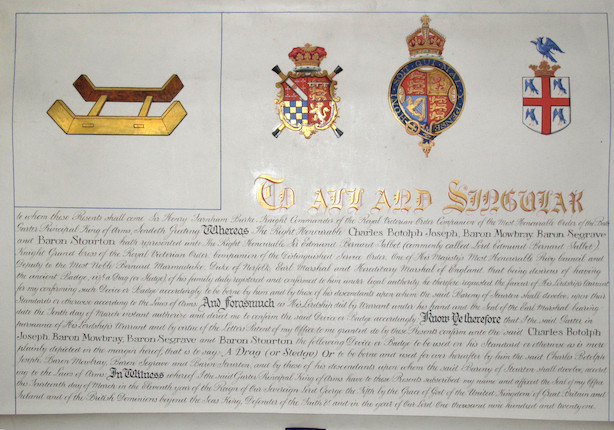 HONI SOIT QUI MAL Y PENSE
To ALL AND SINGULAR
to whom these Presents shall come Sir Henry Farnham Burke, Knight Commander of the Royal Victorian Order Companion of the Most Honourable Order of the Bath
Garter Principal King of Arms Sendeth Greeting Whereas The Right Honourable Charles Botolph Joseph, Baron Mowbray, Baron Segrave
and Baron Stourton hath represented unto The Right Honourable Sir Edmund Bernard Talbot (commonly called Lord Edmund Bernard Talbot)
Knight Grand Cross of the Royal Victorian Order Companion of the Distinguished Service Order One of His Majesty's Most Honourable Privy Council and
Deputy to the Most Noble Bernard Marmaduke Duke of Norfolk, Earl Marshal and Hereditary Marshal of England that being desirous of having
the ancient Badge, of his family duly registered and confirmed to him under lawful authority he therefore requested the favour of His Lordship's Warrant
for my confirming such Device or Badge accordingly to be borne by him and by those of his descendants upon whom the said Barony of Stourton shall devolve upon their
Standards or otherwise according to the Laws of Arms And forasmuch as His Lordship did by Warrant under his hand and the Seal of the Earl Marshal bearing
date the Tenth day of March instant authorize and direct me to confirm the said Device or Badge accordingly Know Ye therefore that I the said Garter in
pursuance of His Lordship's Warrant and by virtue of the Letters Patent of my Office to me granted do by these Presents confirm unto the said Charles Botolph
Joseph, Baron Mowbray, Baron Segrave and Baron Stourton the following Device or Badge to be used on his Standard or otherwise as is more
plainly depicted in the margin hereof, that is to say - A Drag (or Sledge) Or to be borne and used for ever hereafter by him the said Charles Botolph
Joseph Baron Mowbray, Baron Segrave and Baron Stourton and by those of his descendants upon whom the said Barony of Stourton shall devolve, accord
ing to the Laws of Arms. In Witness whereof I the said Garter Principal King of Arms have to these Presents subscribed my name and affixed the Seal of my Office
this Fourteenth day of March in the Eleventh year of the Reign of Our Sovereign Lord George the Fifth by the Grace of God of the United Kingdom of Great Britain and
Ireland and of the British Dominions beyond the Seas King, Defender of the Faith &c and in the year of Our Lord One thousand nine hundred and twenty one.